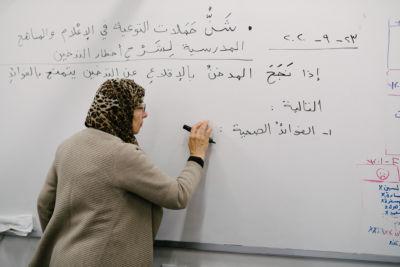 ٢٣-٩-٢٠٢٠
• شنّ حملات التوعية في الإعلام والمناهج
المدرسية لشرح أخطار التدخين
إذا نَجَحَ المدخنُ بالإقلاع عن التدخين يتمتع بالفوائد
التالية :
١- الفوائد الصحية :